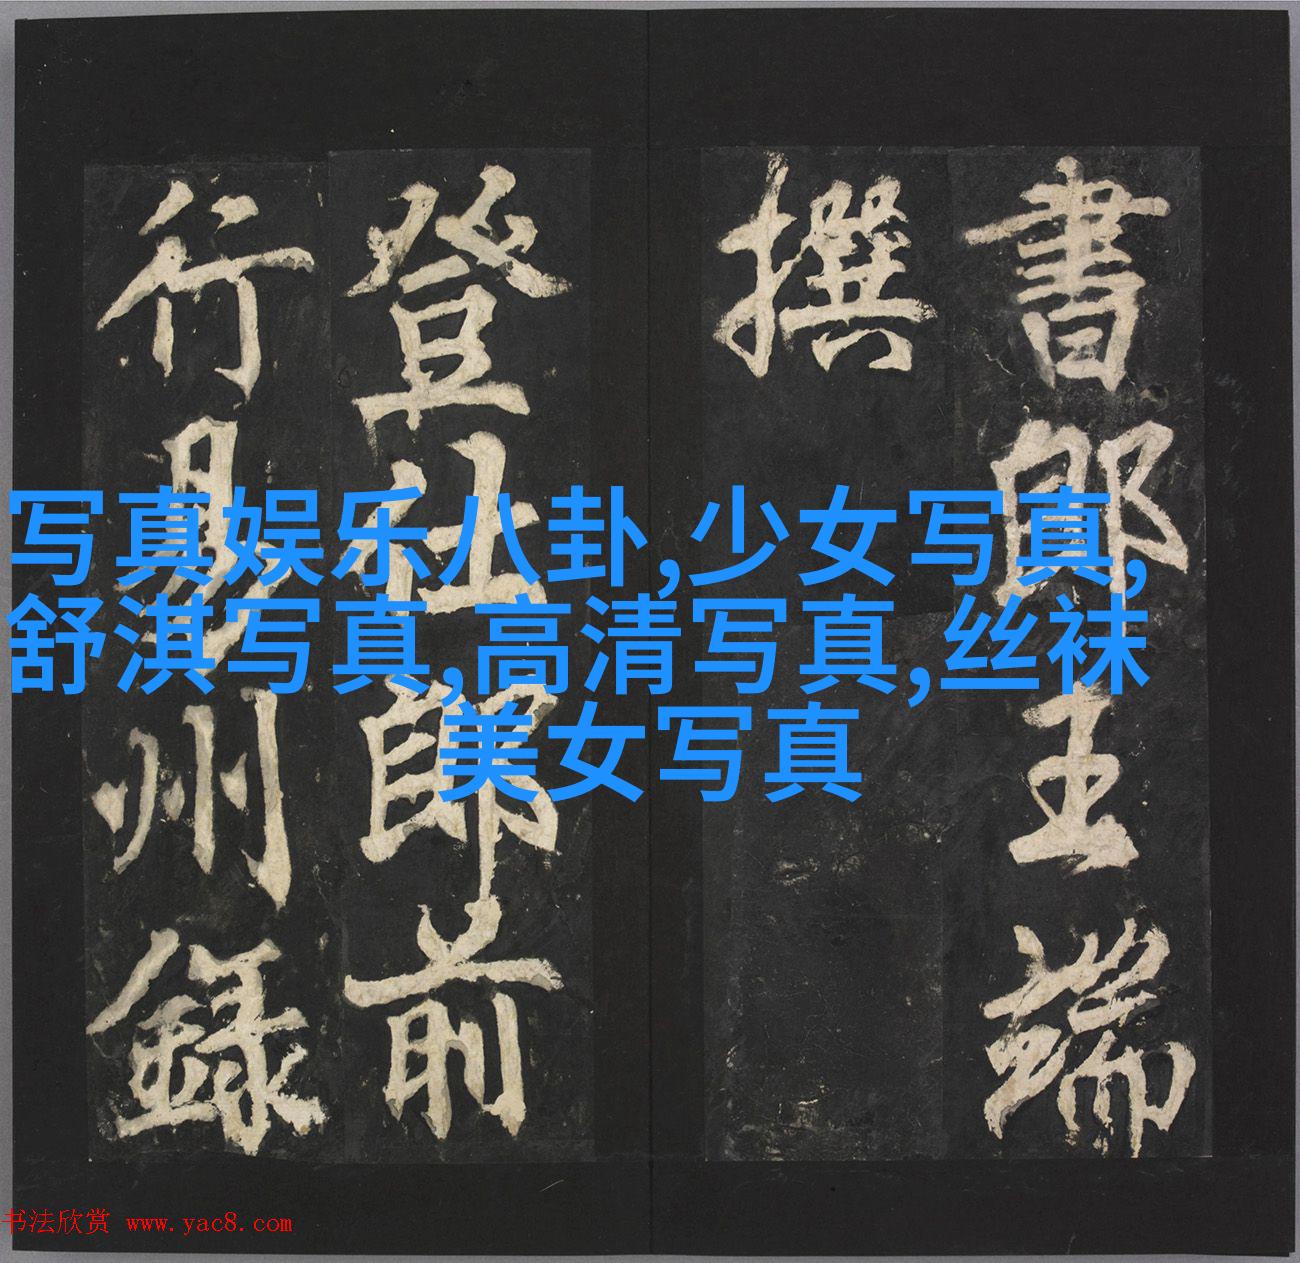 書郎王端
撰
登仕郎前
行易州録
写真娱乐八卦,少女写真,
舒淇写真,高清写真,丝袜
美女写真
书法欣赏 www.yac8.com